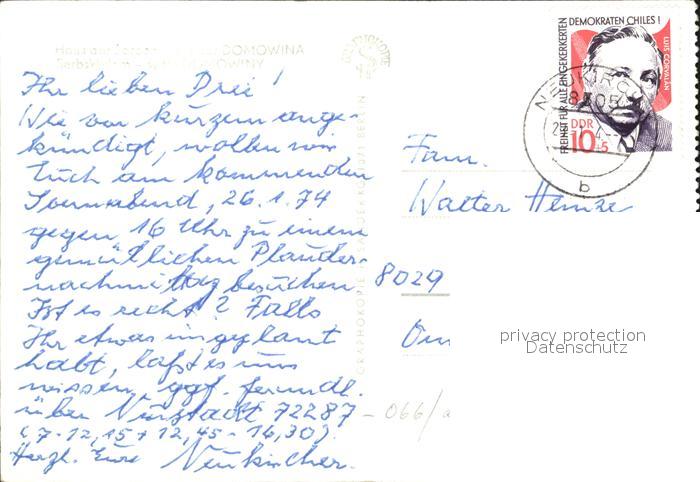 Ihr lieben Drei!
Wie vor kurzem ange-
kündigt, wollen wir
Euch am kommenden
Sonnabend, 26.1.74
gegen 16 Uhr zu einem
gemütlichen Plauder-
nachmittag besuchen.
Ist es recht? Falls
Ihr etwas eingeplant
habt, laßt es uns
wissen, ggf. fernmdl.
über Neustadt 72287
(7-12,15 + 12,45 - 16,30).
Herzl. Eure Neukircher.
Haus der Sorben DOMOWINA
DOMOWINY
GRAPHOKOPIE BERLIN
FREIHEIT FÜR ALLE EINGEKERKERTEN
DEMOKRATEN CHILES!
LUIS CORVALAN
DDR
10+5
b
Fam.
Walter Hemze
8029
privacy protection
Datenschutz
066/a